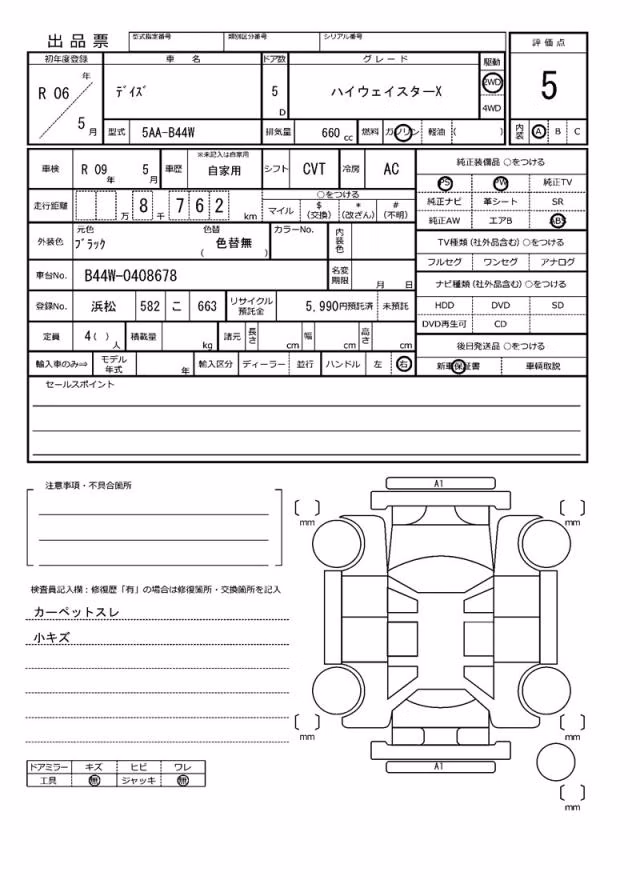 出品票 型式指定番号 類別区分番号 シリアル番号
評価点
初年度登録 車名 ドア数 グレード 駆動
R 06 年 5 月
ﾃﾞｲｽﾞ 5 D ハイウェイスターX 2WD
4WD
5
型式 5AA-B44W 排気量 660 cc 燃料 ガソリン 軽油 ( )
内装 A B C
車検 R 09 年 5 月 車歴 ※未記入は自家用 自家用 シフト CVT 冷房 AC
純正装備品 ○をつける
PS PW 純正TV
純正ナビ 革シート SR
純正AW エアB ABS
走行距離 万 8 千 7 6 2 km
○をつける
マイル $ (交換) * (改ざん) # (不明)
外装色 元色 ﾌﾞﾗｯｸ 色替 色替無 ( ) カラーNo. 内装色
TV種類 (社外品含む) ○をつける
フルセグ ワンセグ アナログ
車台No. B44W-0408678 名変期限 月 日
ナビ種類 (社外品含む) ○をつける
HDD DVD SD
DVD再生可 CD
登録No. 浜松 582 こ 663 リサイクル預託金 5,990円預託済 未預託
定員 4 ( ) 人 積載量 kg 諸元 長さ cm 幅 cm 高さ cm
後日発送品 ○をつける
新車保証書 車輌取説
輸入車のみ⇒ モデル年式 年 輸入区分 ディーラー 並行 ハンドル 左 右
セールスポイント
注意事項・不具合箇所
A1
mm
mm
検査員記入欄：修復歴「有」の場合は修復箇所・交換箇所を記入
カーペットスレ
小キズ
mm
mm
A1
ドアミラー キズ ヒビ ワレ
工具 無 ジャッキ 無
mm